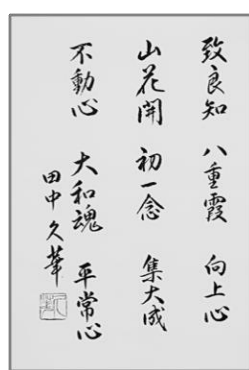 致良知 八重霞 向上心
山花開 初一念 集大成
不動心 大和魂 平常心
田中久華